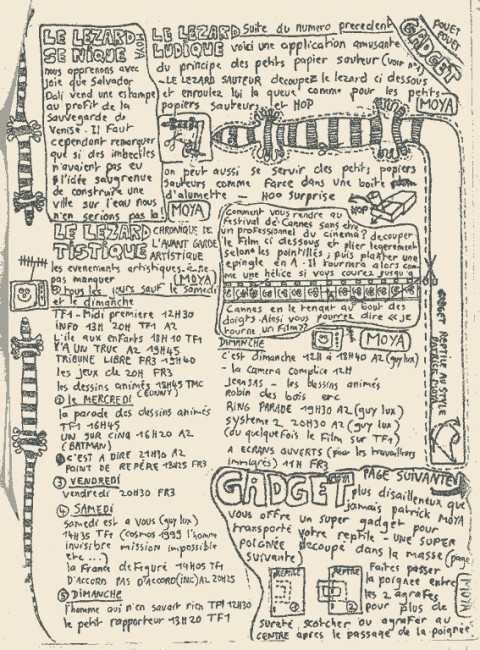 LE LEZARD
SE NIQUE
MOYA
nous apprenons avec
joie que Salvador
Dali vend une estampe
au profit de la
Sauvegarde de
Venise. Il faut
cependant remarquer
que si des imbeciles
n'avaient pas eu
l'idée saugrenue
de construire une
ville sur l'eau nous
n'en serions pas la
LE LEZARD
LUDIQUE
Suite du numero precedent
voici une application amusante
du principe des petits papier sauteur (voir n°1)
-LE LEZARD SAUTEUR decoupez le lezard ci dessous
et enroulez lui la queue comme pour les petits
papiers sauteurs et HOP
POUET
POUET
GADGET
MOYA
on peut aussi se servir des petits papiers
sauteurs comme farce dans une boite
d'alumette - HOO surprise
MOYA
HOP
Comment vous rendre au
Festival de Cannes sans être
un professionnel du cinema? decouper
le Film ci dessous et plier legerement
selon les pointillés ; puis planter une
epingle en A. Il tournera alors com
me une hélice si vous courez jusqu'a
Cannes en le tenant au bout des
doigts. Ainsi vous pourrez dire "je
tourne un Film"?
MOYA
LE LEZARD
TISTIQUE
CHRONIQUE DE
L'AVANT GARDE
ARTISTIQUE
les evenements artistiques à ne
pas manquer
MOYA
tous les jours sauf le samedi
et le dimanche
TF1 - Midi premiere 12H30
INFO 13H 20H TF1 A2
l'ile aux enfants 18H10 TF1
Y'A UN TRUC A2 19H45
TRIBUNE LIBRE FR3 19H40
les jeux de 20H FR3
les dessins animés 18H45 TMC
② le MERCREDI
la parade des dessins animés
TF1 16H45
UN SUR CINQ 16H20 A2
(BATMAN)
c'est A DIRE 21H30 A2
POINT DE REPÈRE FR3
③ VENDREDI
Vendredi 20H30 FR3
④ SAMEDI
Samedi est a vous (guy lux)
14H35 TF1 (cosmos 1999 l'homme
invisible mission impossible
etc...)
la France defiguré 14H05 TF1
D'ACCORD PAS D'ACCORD (INC) A2 20H25
⑤ DIMANCHE
l'homme qui n'en savait rien TF1 12H30
le petit rapporteur 13H20 TF1
DIMANCHE
c'est dimanche 12H à 18H40 A2 (guy lux)
- la camera complice 12H
- les dessins animés
robin des bois etc
RING PARADE 19H30 A2 (guy lux)
systeme 2 20H30 A2 (guy lux)
(ou quelquefois le Film sur TF1)
A ECRANS OUVERTS (pour les travailleurs
immigrés) 11H FR3
GADGET REPTILE AU STYLE
GADGET
PAGE SUIVANTE
plus disailleneux que
jamais patrick MOYA
vous offre un super gadget pour
transporté votre reptile - UNE SUPER
POIGNÉE decoupé dans la masse (page
suivante)
REPTILE
REPTILE
Faites passer
la poignee entre
les 2 agrafes
pour plus de
sureté scotcher ou agrafer au
CENTRE après le passage de la poignée
MOYA